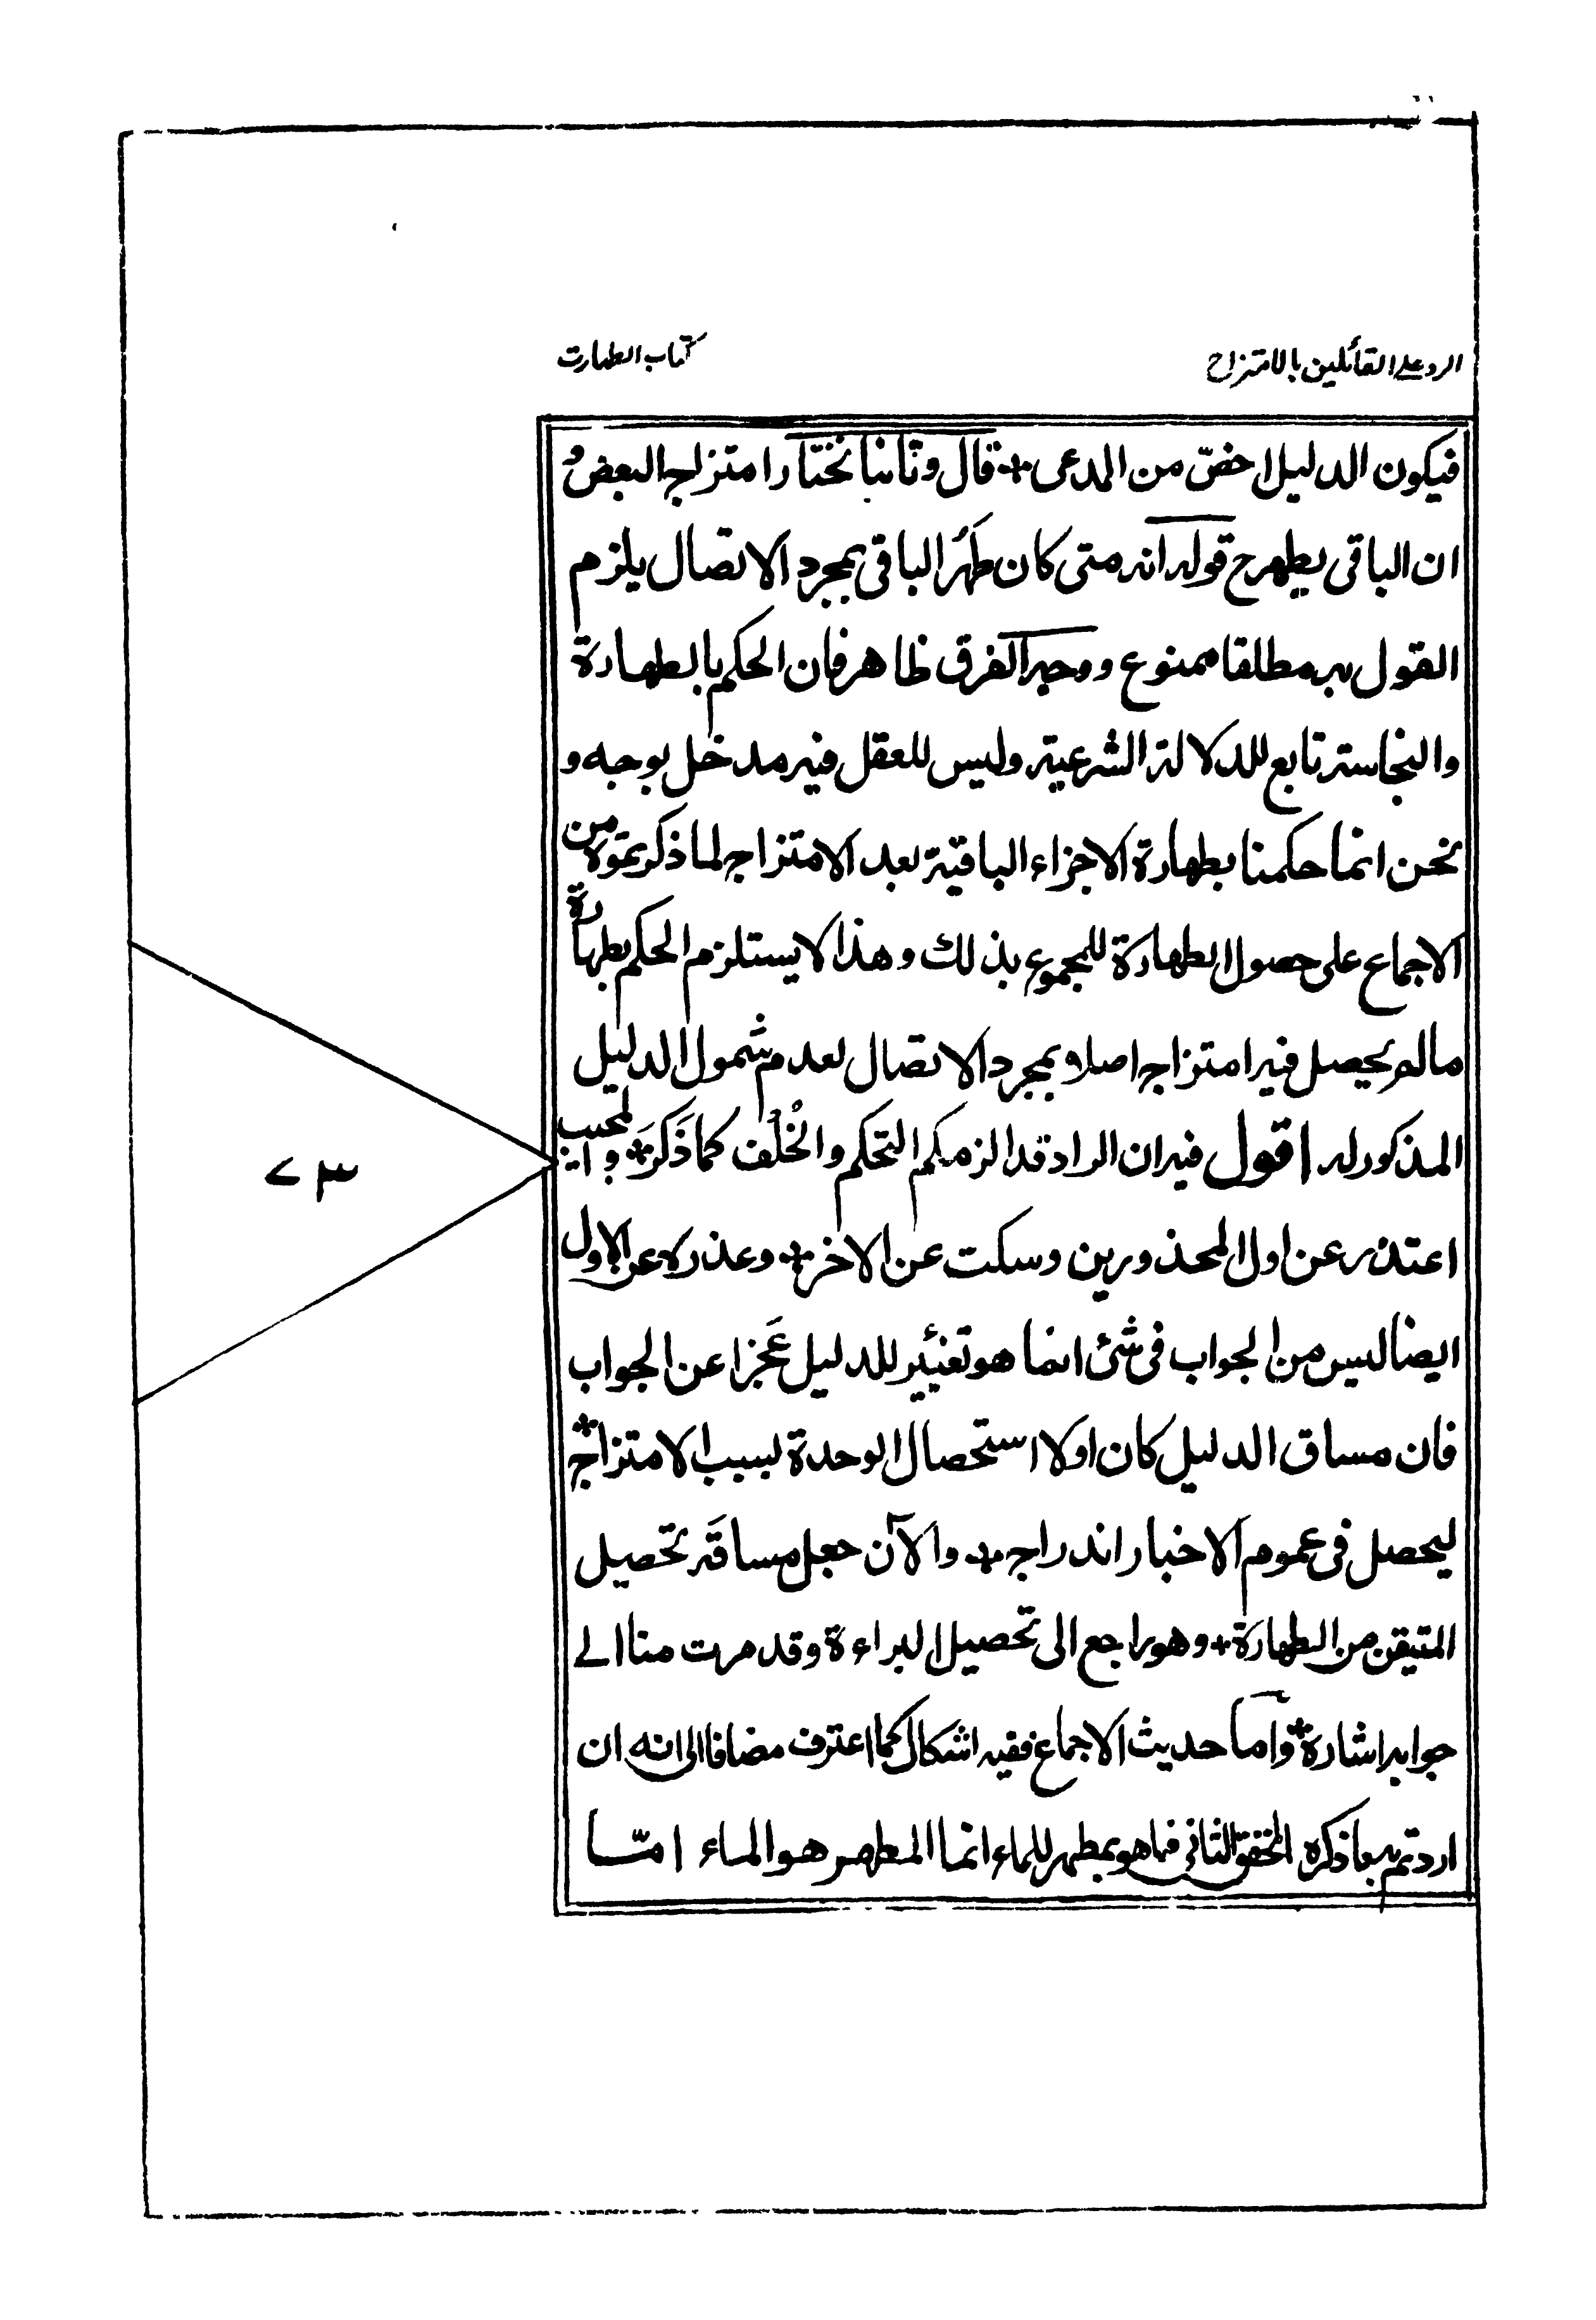 الرد على القائلين بالامتزاج
كتاب الطهارت
فيكون الدليل اخصّ من المدعى * قال وثانيا نختار امتزاج البعض و
ان الباقى يطهر ح قوله انه متى كان طَهُر الباقى بمجرد الاتصال يلزم
القول به مطلقا ممنوع ووجه الفرق ظاهر فان الحكم بالطهارة
والنجاسة تابع للدلالة الشرعية وليس للعقل فيه مدخل بوجه و
نحن انما حكمنا بطهارة الاجزاء الباقية بعد الامتزاج لما ذكرتموه من
الاجماع على حصول الطهارة للمجموع بذلك وهذا لا يستلزم الحكم بطهارة
مالم يحصل فيه امتزاج اصلا وبمجرد الاتصال لعدم شمول الدليل
المذكور له اقول فيه ان الراد قد الزمكم التحكم والخُلْف كما ذَكَرَ * و المجيب
اعتذر عن اول المحذورين وسكت عن الاخر * وعذره عن الاول
ايضا ليس من الجواب فى شئ انما هو تغيير للدليل عَجزا عن الجواب
فان مساق الدليل كان اولا استحصال الوحدة لسبب الامتزاج *
ليحصل فى عموم الاخبار اندراج * والآن جعل مساقَه تحصيل
المتيقن من الطهارة * وهو راجع الى تحصيل البراءة وقد مرت منا الے
جوابه اشارة * وأما حديث الاجماع ففيه اشكال كما اعترف مضافا الى انه ان
اردتم به ما ذكره المحقق الثانى فما هو بمطهر للماء انما المطهر هو الماء امّا
۷۳